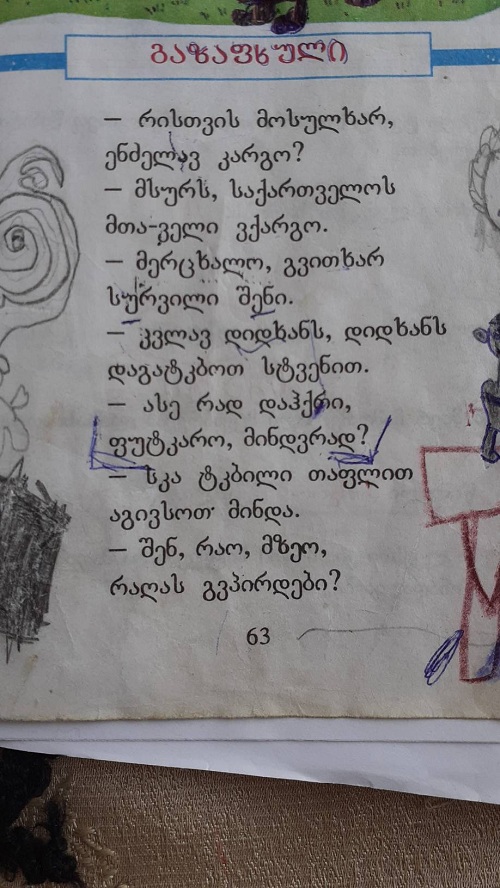 გაზაფხული
– რისთვის მოსულხარ,
ენძელავ კარგო?
– მსურს, საქართველოს
მთა-ველი ვქარგო.
– მერცხალო, გვითხარ
სურვილი შენი.
– კვლავ დიდხანს, დიდხანს
დაგატკბოთ სტვენით.
– ასე რად დაჰქრი,
ფუტკარო, მინდვრად?
– სკა ტკბილი თაფლით
აგივსოთ მინდა.
– შენ, რაო, მზეო,
რაღას გვპირდები?
63